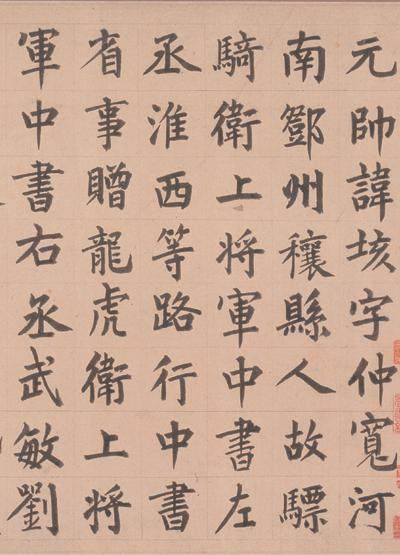 元帥諱垓字仲寬河
南鄧州穰縣人故驃
騎衛上將軍中書左
丞淮西等路行中書
省事贈龍虎衛上將
軍中書右丞武敏劉